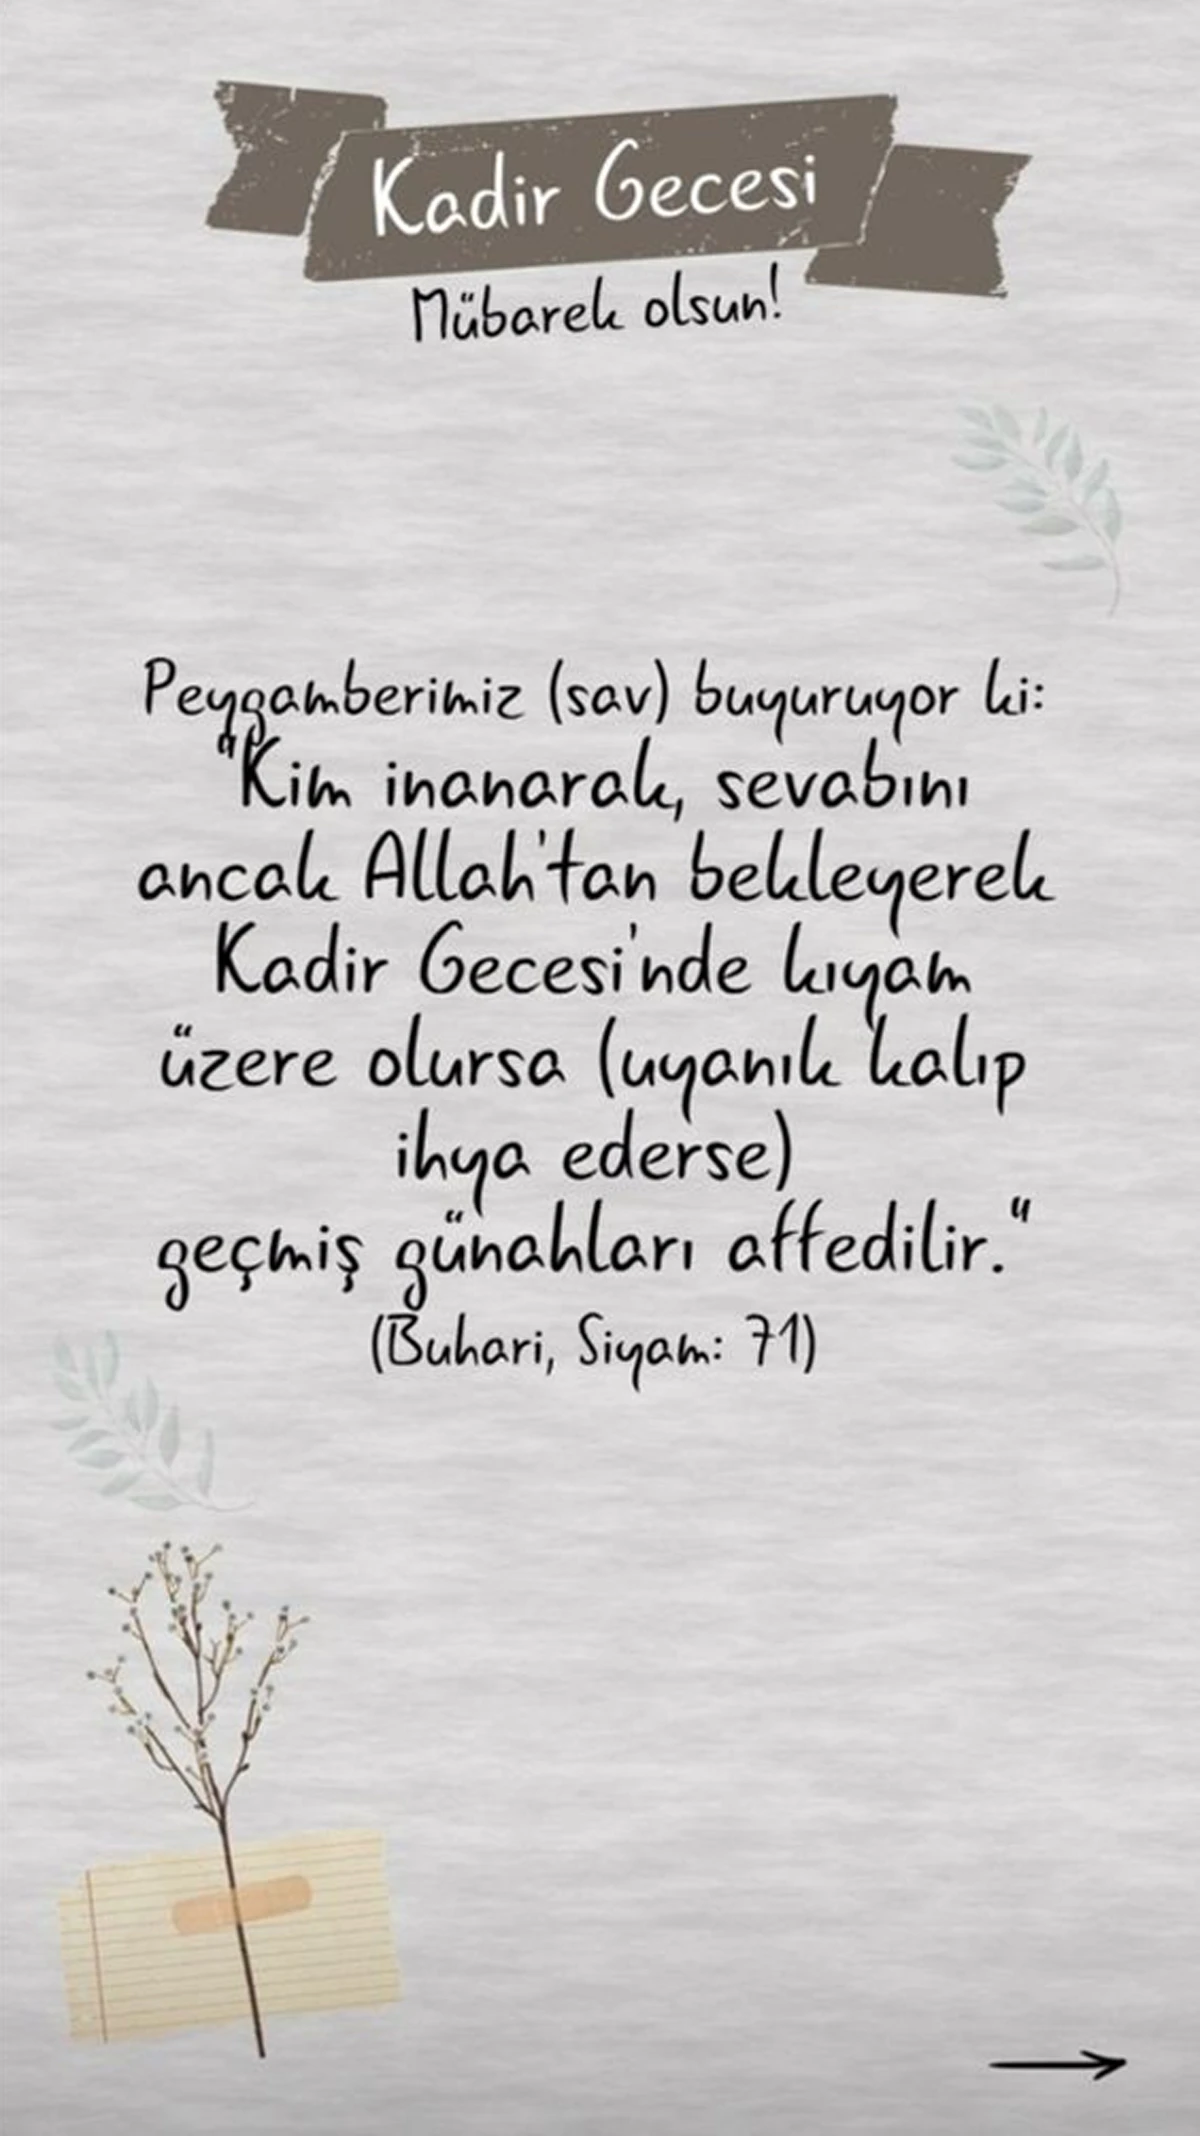 Kadir Gecesi
Mübarek olsun!
Peygamberimiz (sav) buyuruyor ki:
"Kim inanarak, sevabını
ancak Allah'tan bekleyerek
Kadir Gecesi'nde kıyam
üzere olursa (uyanık kalıp
ihya ederse)
geçmiş günahları affedilir."
(Buhari, Siyam: 71)